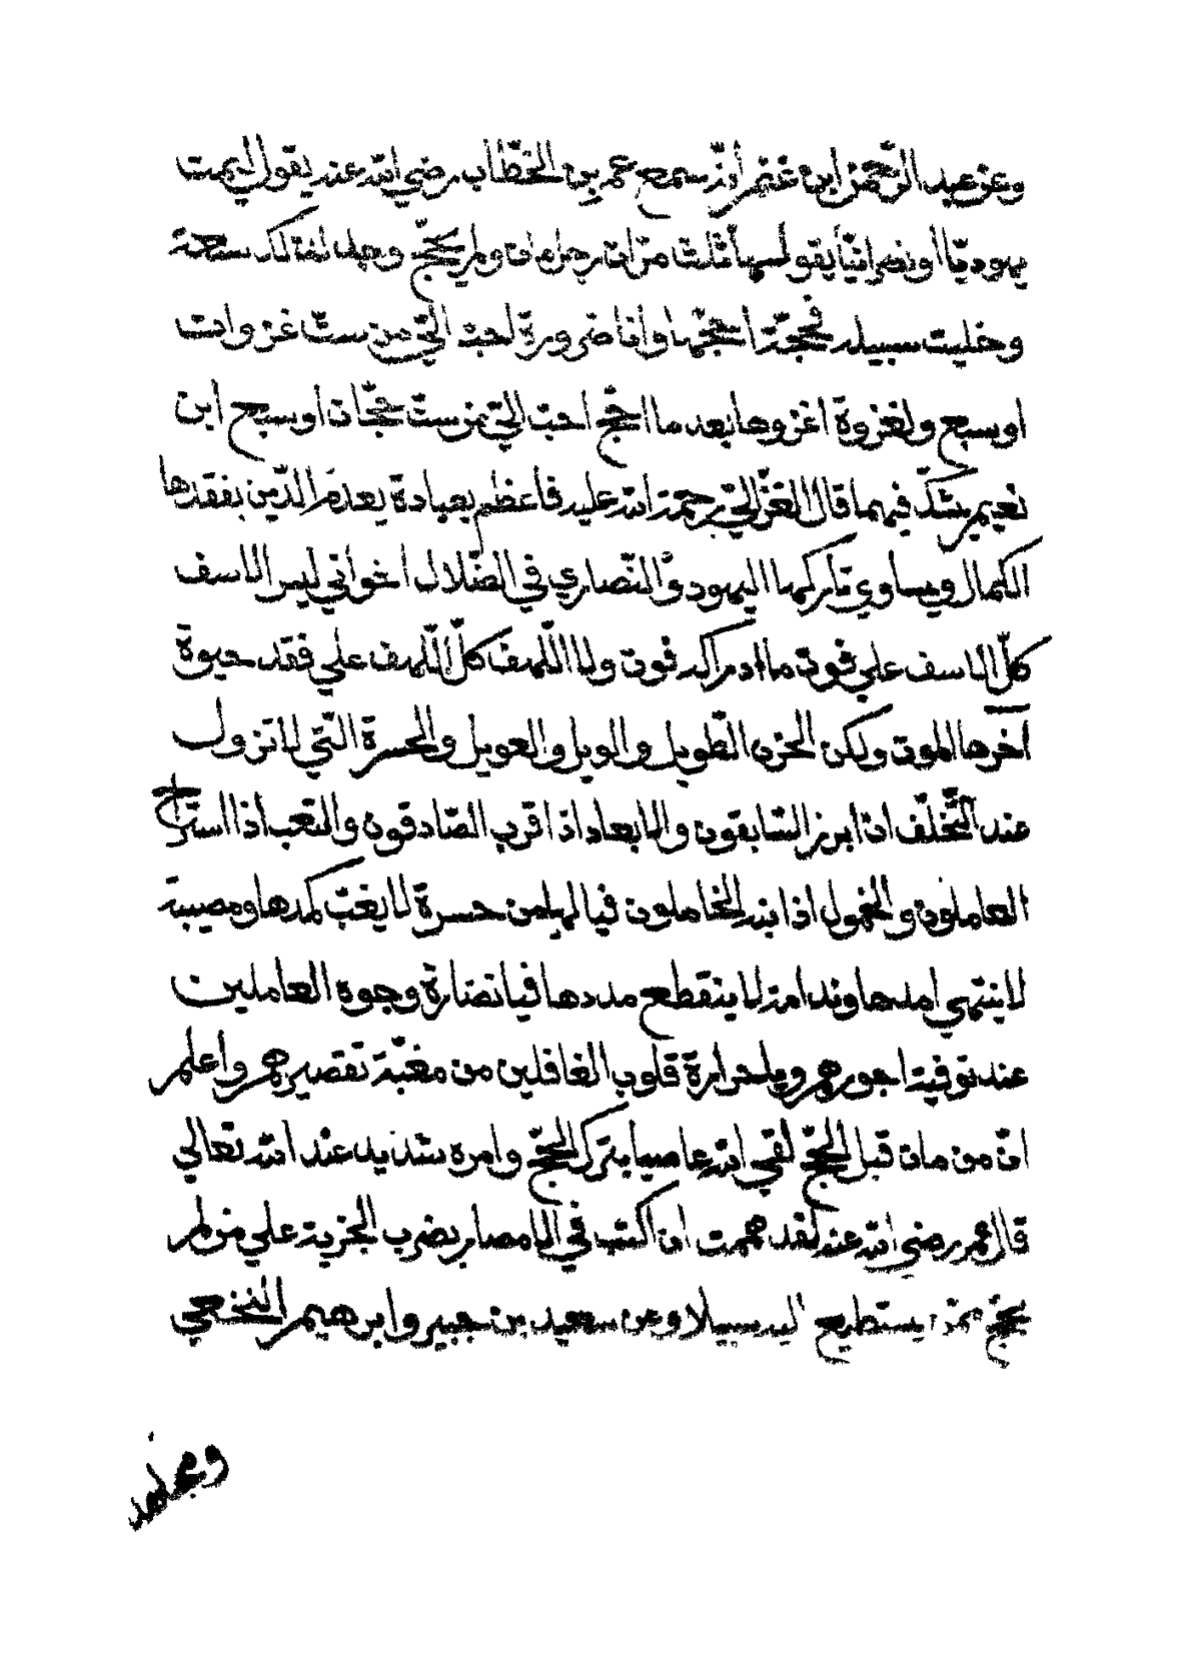 وعن عبد الرّحمن ابن غنم أنّه سمع عمر بن الخطّاب رضي الله عنه يقول ليمت
يهوديّا أو نصرانيّا يقولها ثلث مرّات رجل مات ولم يحجّ وجد لذلك سعة
وخليت سبيله فحجّة احجّها وانا ضرورة احبّ الّي من ستّ غزوات
او سبع ولغزوة اغزوها بعد ما احجّ احبّ الّي من ستّ حجّات او سبع ابن
نعيم يشكّ فيهما قال الغزّالّي رحمة الله عليه فاعظم بعبادة يعدم الدّين بفقدها
الكمال ويساوي تاركها اليهود والنّصاري في الضّلال اخواني ليس الاسف
كلّ الاسف علي فوت ما ادراكه فوت ولا اللّهف كلّ اللّهف علي فقد حيوة
آخرها الموت ولكن الحزن الطّويل والويل والعويل والحسرة الّتي لا تزول
عند التّخلّف اذا برز السّابقون والابعاد اذا قرب الصّادقون والتعب اذا استراح
العاملون والخمول اذا نبه الخاملون فيا لها من حسرة لا يغبّ كمدها ومصيبة
لا ينتهي امدها وندامة لا ينقطع مددها فيا نضارة وجوه العاملين
عند توفية اجورهم ويا حرارة قلوب الغافلين من مغبّة تقصيرهم واعلم
انّ من مات قبل الحجّ لقي الله عاصيا بترك الحجّ وامره شديد عند الله تعالي
قال عمر رضي الله عنه لقد هممت ان اكتب في الامصار بضرب الجزية علي من لم
يحجّ ممّن يستطيع اليه سبيلا وعن سعيد بن جبير وابرهيم النخعي
ومجاهد